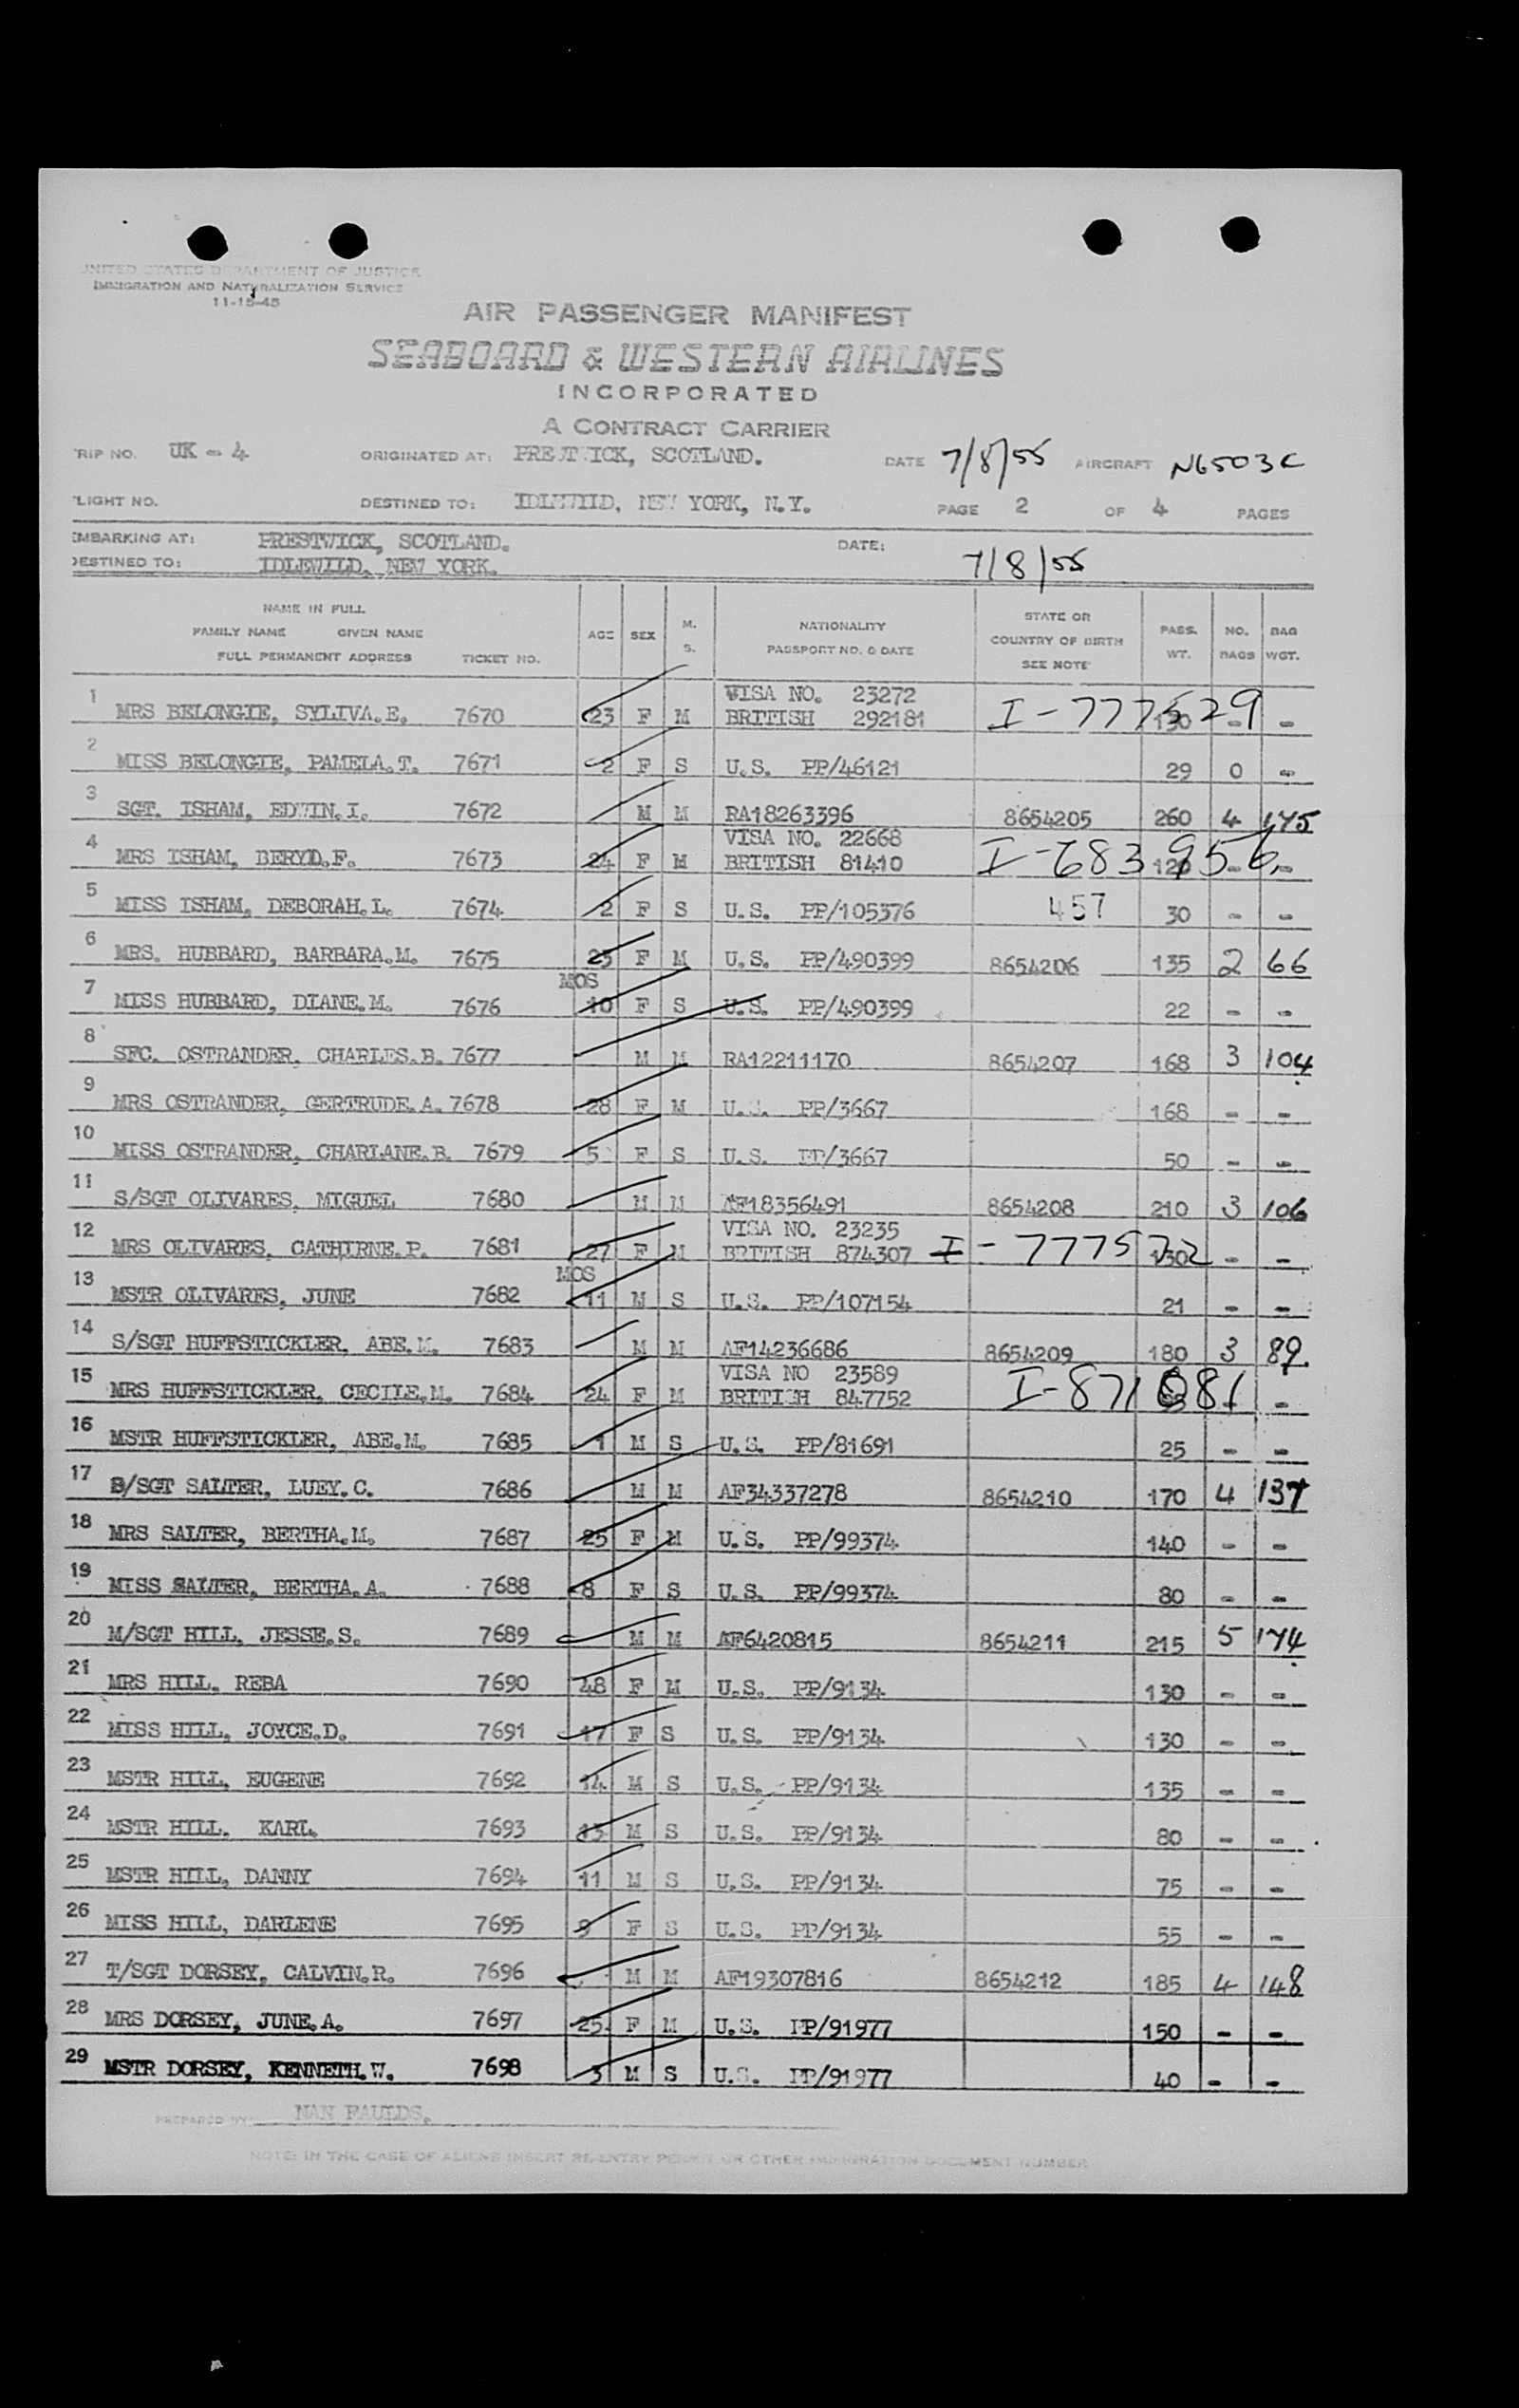 UNITED STATES DEPARTMENT OF JUSTICE
IMMIGRATION AND NATURALIZATION SERVICE
11-15-45
AIR PASSENGER MANIFEST
SEABOARD & WESTERN AIRLINES
INCORPORATED
A CONTRACT CARRIER
TRIP NO. UK - 4 ORIGINATED AT: PRESTWICK, SCOTLAND. DATE 7/8/55 AIRCRAFT N6503C
FLIGHT NO. DESTINED TO: IDLEWILD, NEW YORK, N.Y. PAGE 2 OF 4 PAGES
EMBARKING AT: PRESTWICK, SCOTLAND. DATE: 7/8/55
DESTINED TO: IDLEWILD, NEW YORK.
NAME IN FULL
FAMILY NAME GIVEN NAME
FULL PERMANENT ADDRESS TICKET NO. AGE SEX M. S. NATIONALITY PASSPORT NO. & DATE STATE OR COUNTRY OF BIRTH SEE NOTE PASS. WT. NO. BAGS BAG WGT.
VISA NO. 23272
1 MRS BELONGIE, SYLIVA.E. 7670 23 F M BRITISH 292181 I-777529 130 - -
2 MISS BELONGIE, PAMELA.T. 7671 2 F S U.S. PP/46121 29 0 -
3 SGT. ISHAM, EDWIN.I. 7672 M M RA18263396 8654205 260 4 175
VISA NO. 22668
4 MRS ISHAM, BERYD.F. 7673 24 F M BRITISH 81410 I-683956 120 - -
5 MISS ISHAM, DEBORAH.L. 7674 2 F S U.S. PP/105376 457 30 - -
6 MRS. HUBBARD, BARBARA.M. 7675 25 F M U.S. PP/490399 8654206 135 2 66
MOS
7 MISS HUBBARD, DIANE.M. 7676 10 F S U.S. PP/490399 22 - -
8 SFC. OSTRANDER, CHARLES.B. 7677 M M RA12211170 8654207 168 3 104
9 MRS OSTRANDER, GERTRUDE.A. 7678 28 F M U.S. PP/3667 168 - -
10 MISS OSTRANDER, CHARLANE.B. 7679 5 F S U.S. PP/3667 50 - -
11 S/SGT OLIVARES, MIGUEL 7680 M M AF18356491 8654208 210 3 106
VISA NO. 23235
12 MRS OLIVARES, CATHIRNE.P. 7681 27 F M BRITISH 874307 I-777572 130 - -
MOS
13 MSTR OLIVARES, JUNE 7682 11 M S U.S. PP/107154 21 - -
14 S/SGT HUFFSTICKLER, ABE.M. 7683 M M AF14236686 8654209 180 3 89
VISA NO 23589
15 MRS HUFFSTICKLER, CECILE.M. 7684 24 F M BRITISH 847752 I-871081 -
16 MSTR HUFFSTICKLER, ABE.M. 7685 1 M S U.S. PP/81691 25 - -
17 S/SGT SALTER, LUEY.C. 7686 M M AF34337278 8654210 170 4 137
18 MRS SALTER, BERTHA.M. 7687 25 F M U.S. PP/99374 140 - -
19 MISS SALTER, BERTHA.A. 7688 8 F S U.S. PP/99374 80 - -
20 M/SGT HILL, JESSE.S. 7689 M M AF6420815 8654211 215 5 174
21 MRS HILL, REBA 7690 48 F M U.S. PP/9134 130 - -
22 MISS HILL, JOYCE.D. 7691 17 F S U.S. PP/9134 130 - -
23 MSTR HILL, EUGENE 7692 14 M S U.S. PP/9134 135 - -
24 MSTR HILL. KARL. 7693 13 M S U.S. PP/9134 80 - -
25 MSTR HILL, DANNY 7694 11 M S U.S. PP/9134 75 - -
26 MISS HILL, DARLENE 7695 9 F S U.S. PP/9134 55 - -
27 T/SGT DORSEY, CALVIN.R. 7696 M M AF19307816 8654212 185 4 148
28 MRS DORSEY, JUNE.A. 7697 25 F M U.S. PP/91977 150 - -
29 MSTR DORSEY, KENNETH.W. 7698 3 M S U.S. PP/91977 40 - -
PREPARED BY: NAN FAULDS.
NOTE: IN THE CASE OF ALIENS INSERT RE-ENTRY PERMIT OR OTHER IMMIGRATION DOCUMENT NUMBER